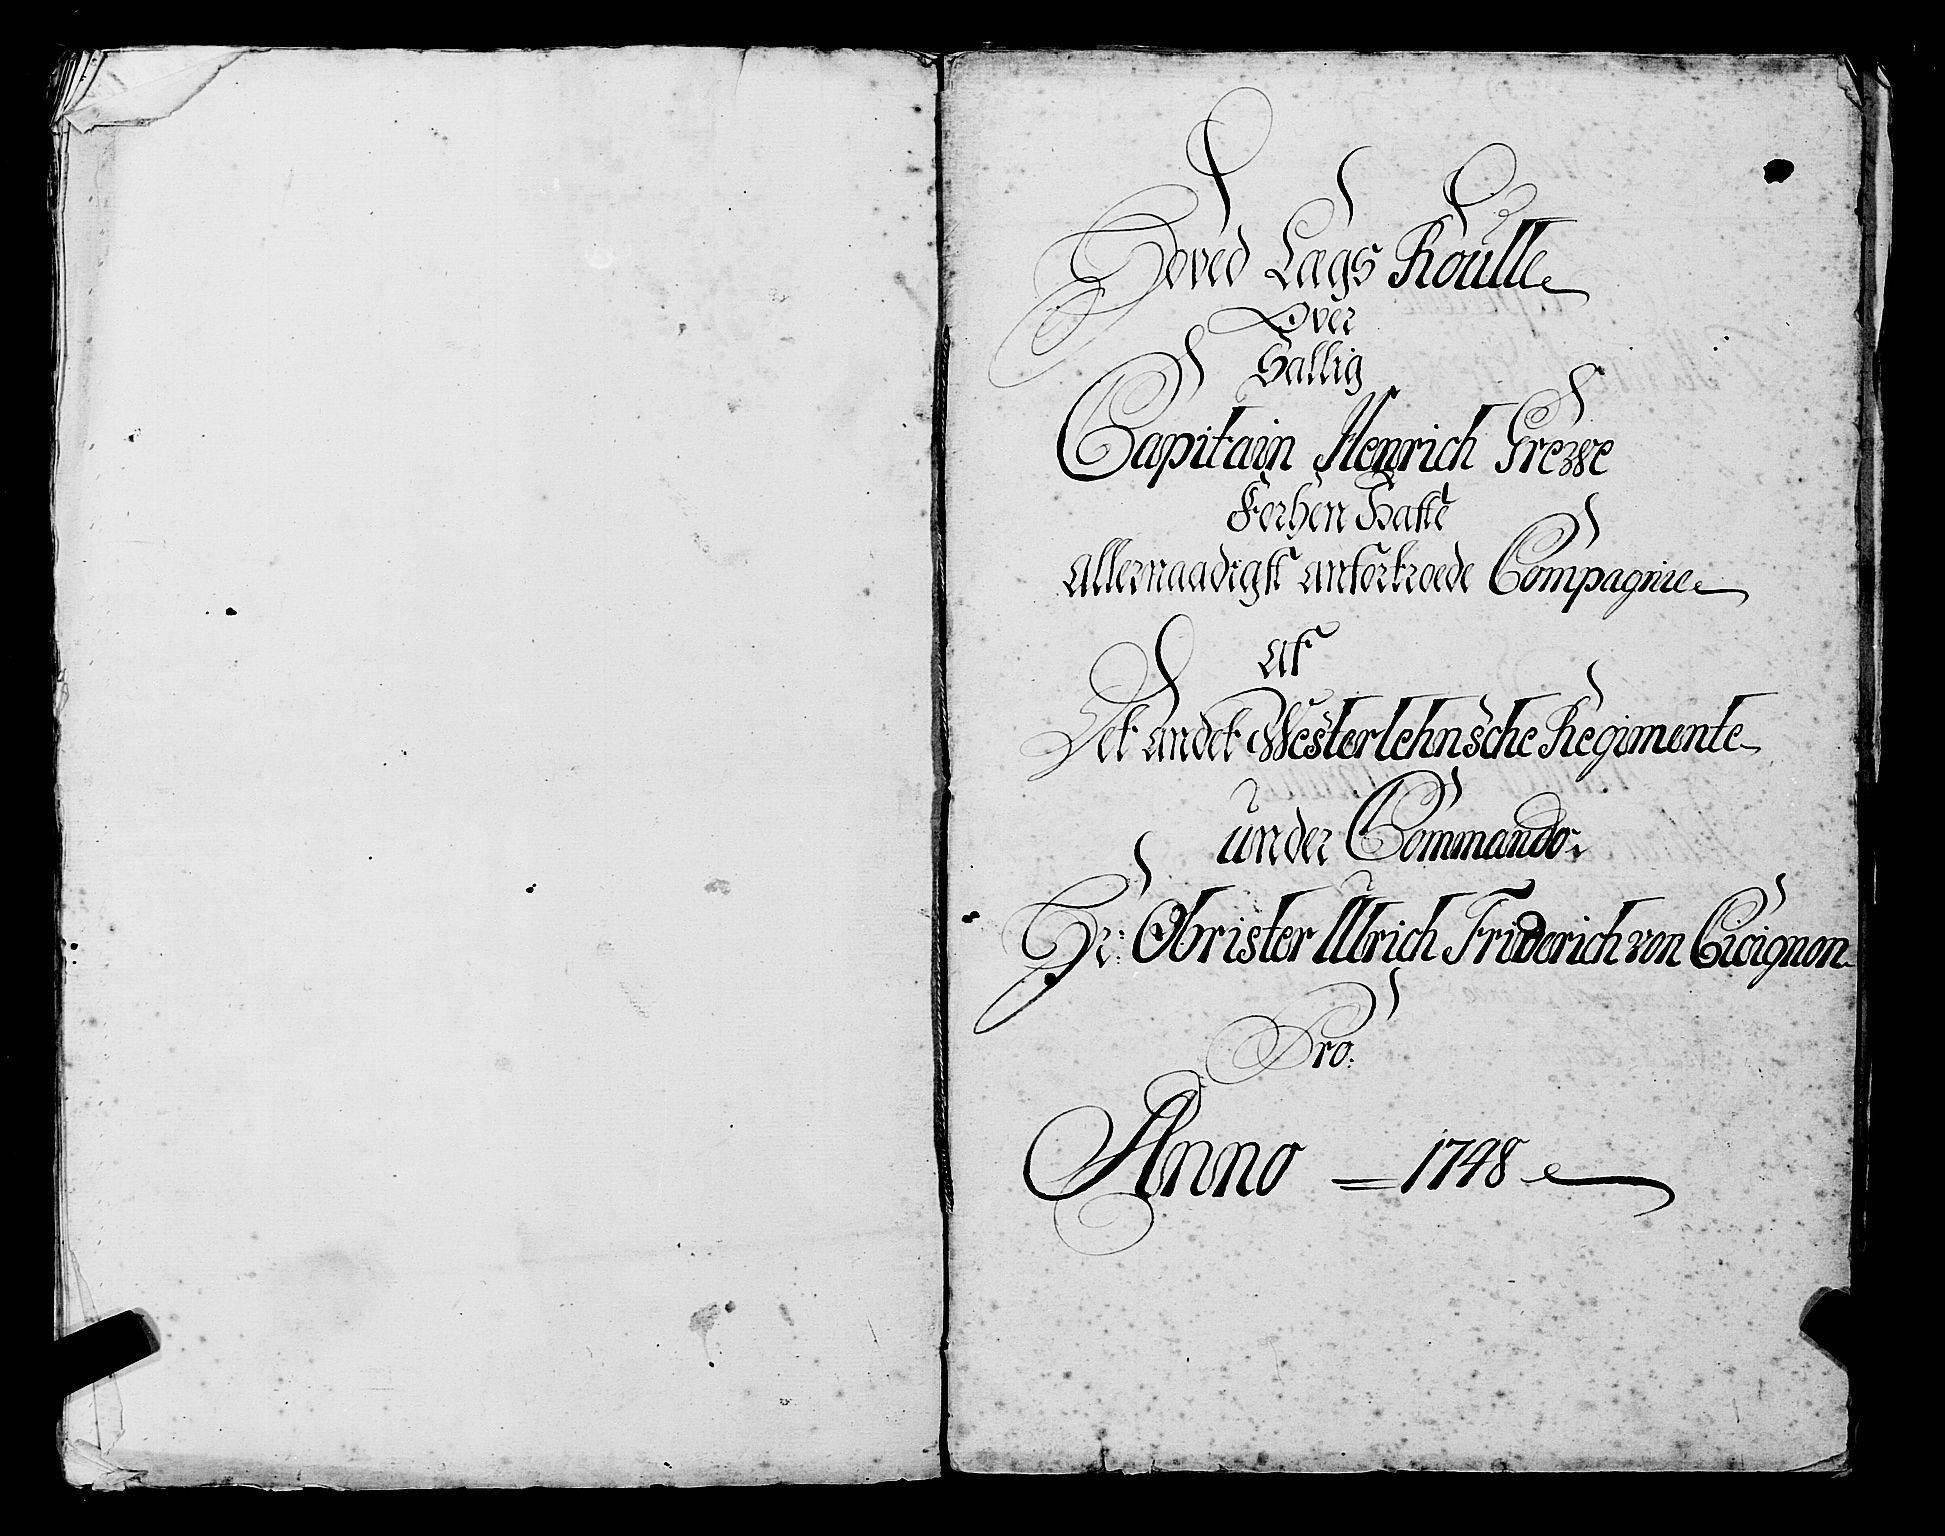 Hoved Lægs Roulle
Over
Sallig
Capitain Henrich Grewe
Forhen Hafte
Allernaadigst anfortroede Compagnie
Af
Det andet Westerlehnsche Regimente
under Commando.
Hr: Obrister Ulrich Friderich von Cicignon
Pro.
Anno = 1748